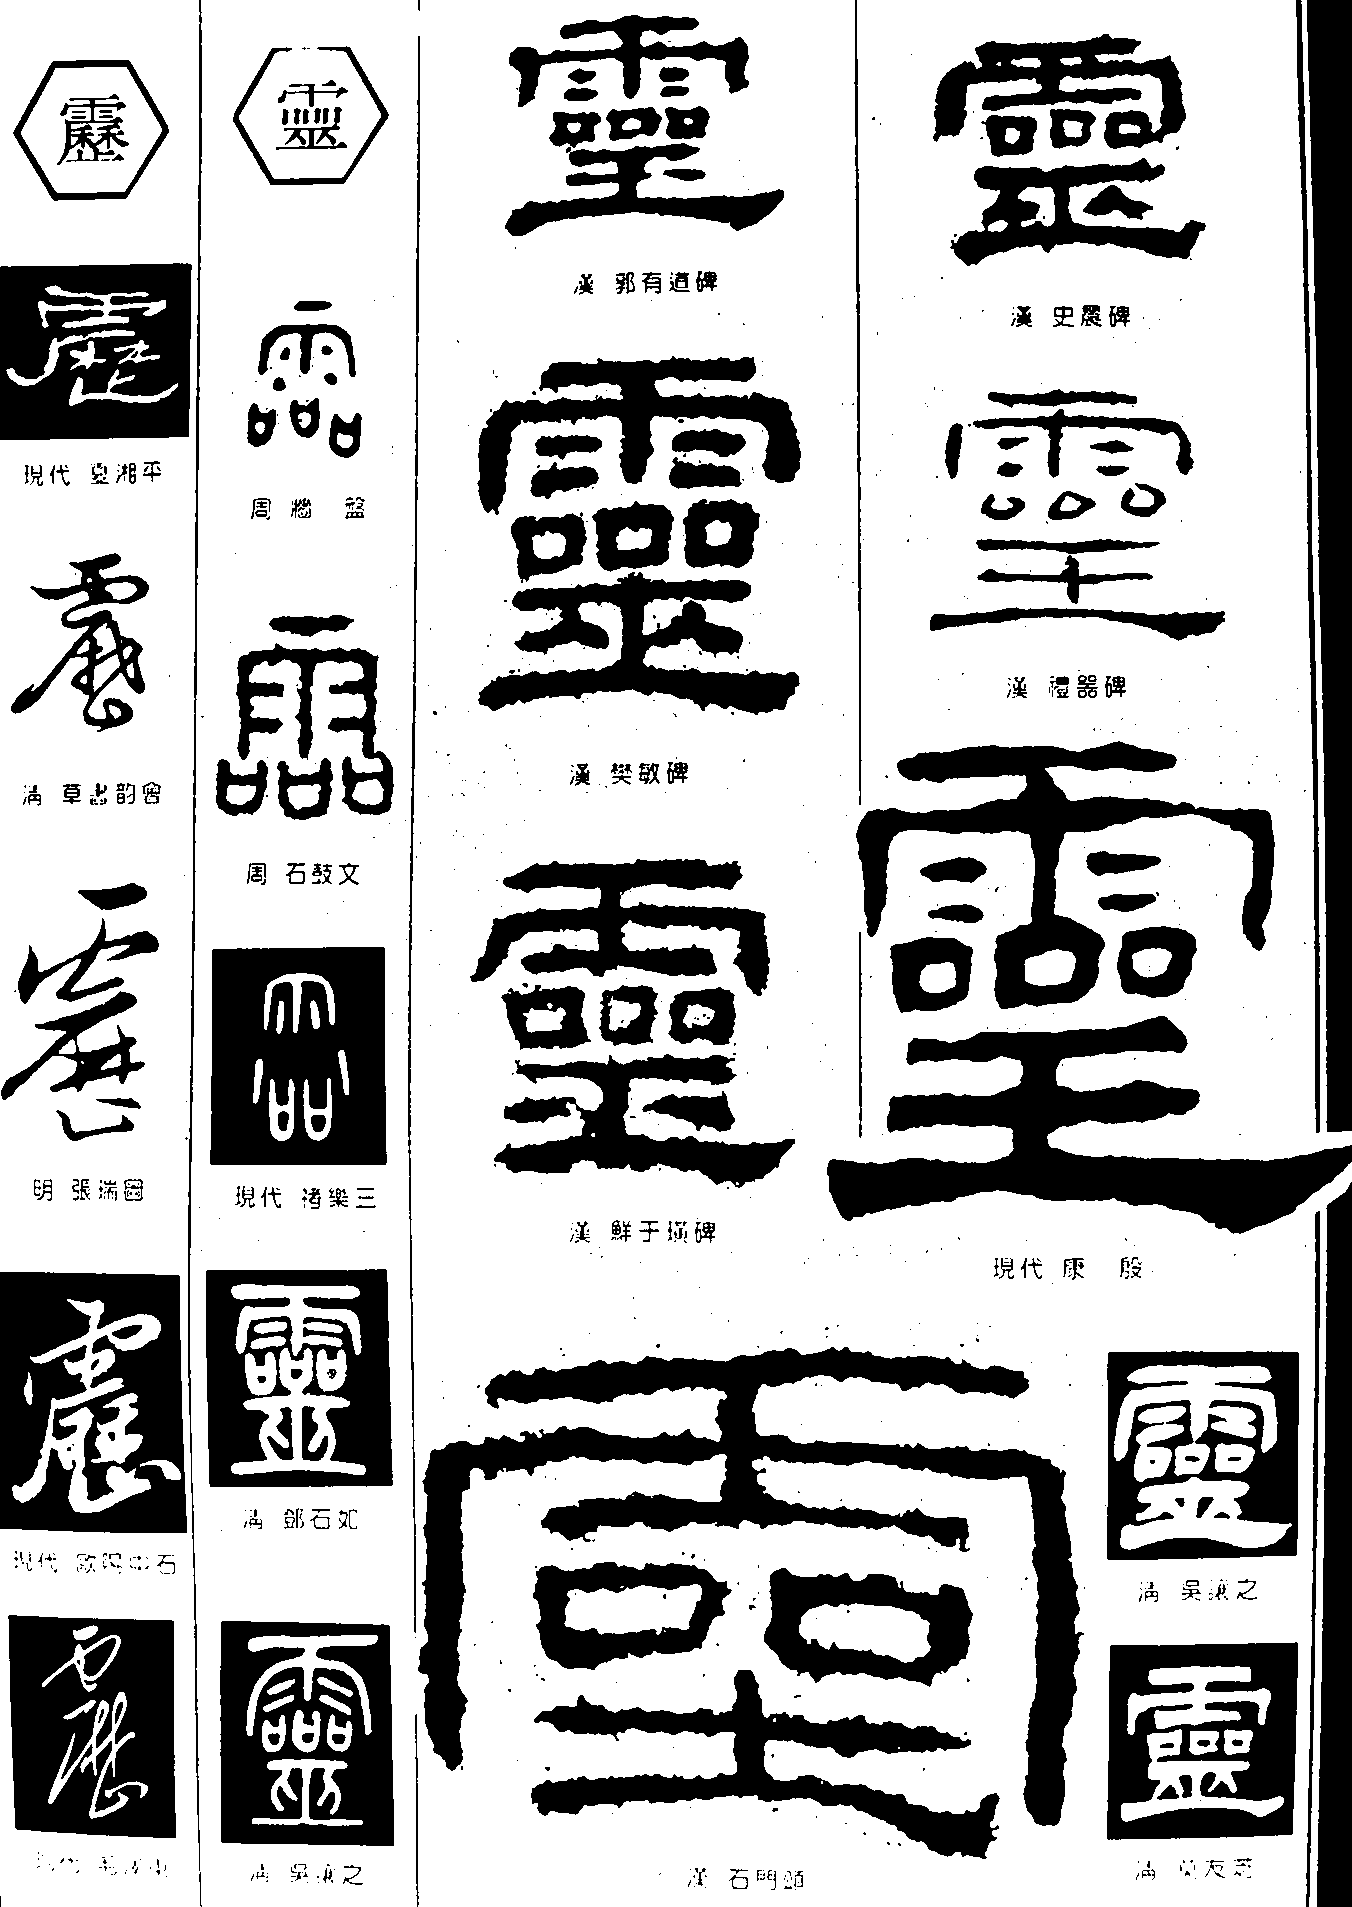 靂
現代 夏湘平
清 草书韵會
明 張瑞圖
現代 歐陽中石
靈
周 牆 盤
周 石鼓文
現代 渚樂三
清 鄧石如
清 吳讓之
靈
漢 郭有道碑
靈
漢 樊敏碑
靈
漢 鮮于璜碑
漢 石門頌
靈
漢 史晨碑
漢 禮器碑
現代 康 殷
靈
清 吳讓之
靈
清 莫友芝